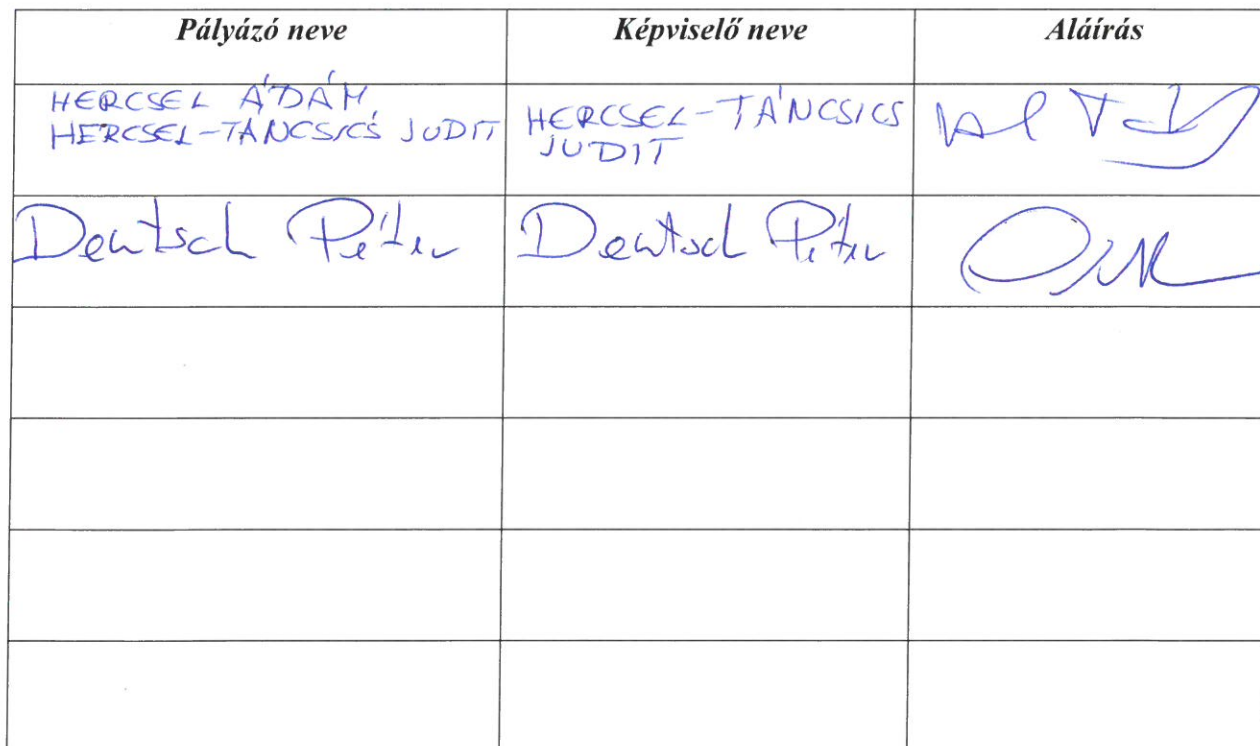 Pályázó neve Képviselő neve Aláírás
HERCSEL ÁDÁM
HERCSEL-TÁNCSICS JUDIT
HERCSEL-TÁNCSICS
JUDIT
Deutsch Péter Deutsch Péter